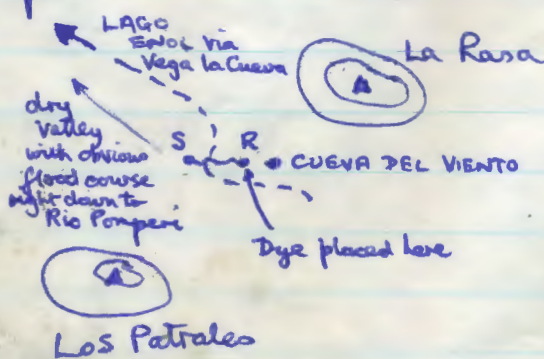 LAGO
ENOL via
Vega la Cueva
La Rasa
dry
valley
with obvious
flood course
right down to
Rio Pomperi
S
R
CUEVA DEL VIENTO
Dye placed here
Los Patrales